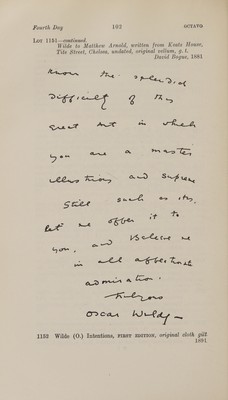 Fourth Day 103 OCTAVO
LOT 1151—continued.
Wilde to Matthew Arnold, written from Keats House,
Tite Street, Chelsea, undated, original vellum, p. l.
David Bogue, 1881
know the splendid
difficulty of this
great art in which
you are a master
illustrious and supreme
Still such as it is,
let me offer it to
you, and believe me
in all affectionate
admiration
truly yours
Oscar Wilde
1152 Wilde (O.) Intentions, FIRST EDITION, original cloth gilt
1891